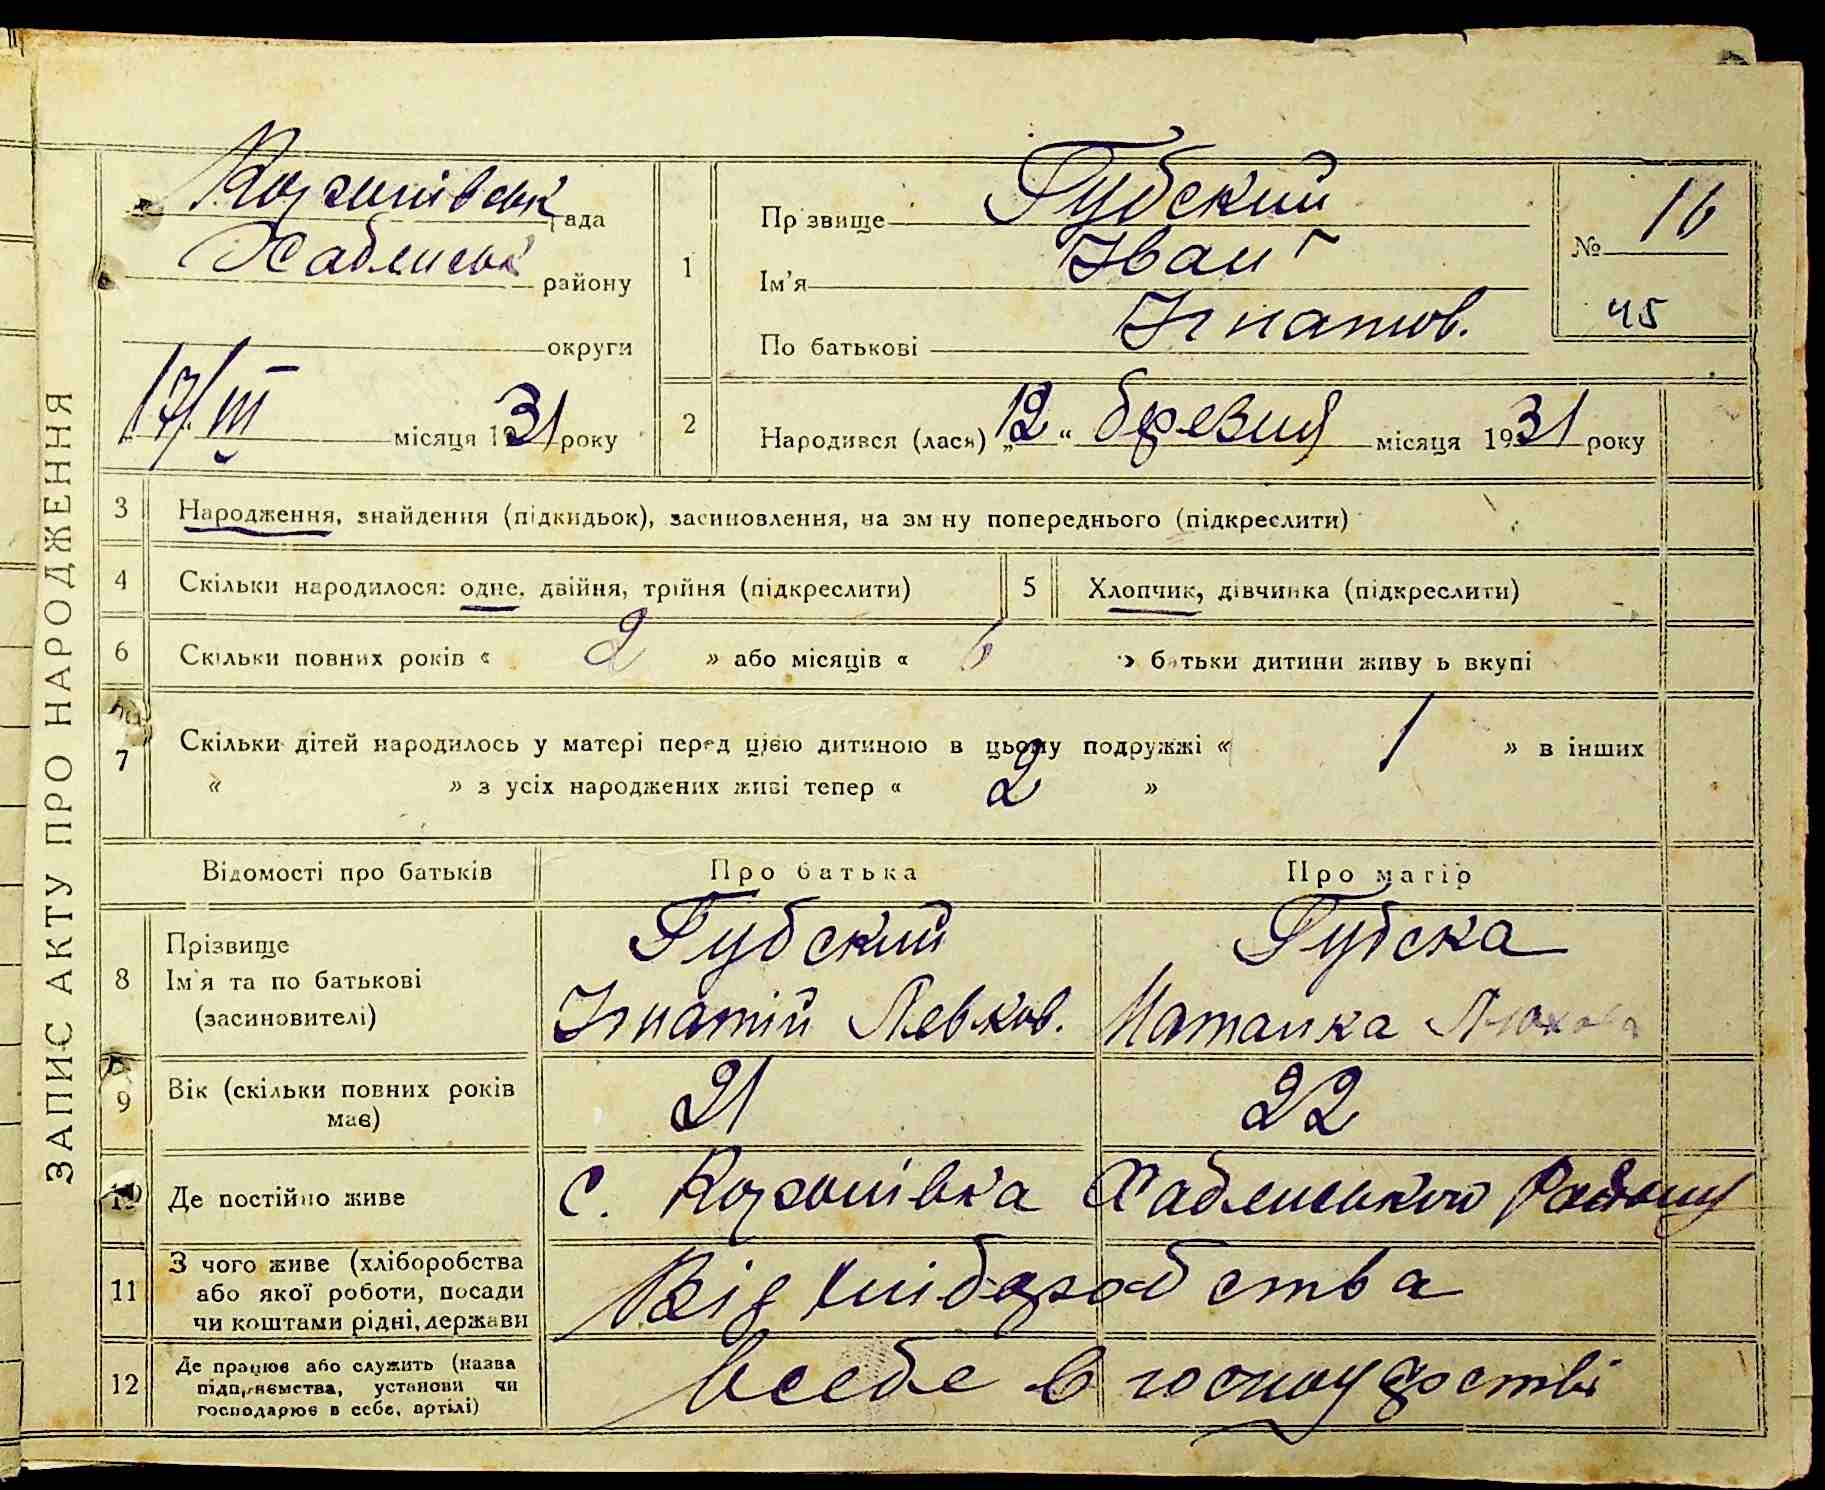 ЗАПИС АКТУ ПРО НАРОДЖЕННЯ
рада
Хабенськ району
округи
17/III місяця 1931 року
1
Прізвище Губский
Ім'я Іван
По батькові Ігнатов.
№ 16
45
2
Народився (лася) „12“ березня місяця 1931 року
3 Народження, знайдення (підкидьок), засиновлення, на зміну попереднього (підкреслити)
4 Скільки народилося: одне, двійня, трійня (підкреслити)
5 Хлопчик, дівчинка (підкреслити)
6 Скільки повних років « 2 » або місяців « 6 » батьки дитини живуть вкупі
7 Скільки дітей народилось у матері перед цією дитиною в цьому подружжі « 1 » в інших
« » з усіх народжених живі тепер « 2 »
Відомості про батьків Про батька Про матір
8 Прізвище Губский Губска
Ім'я та по батькові Ігнатій Левков. Наталка
(засиновителі)
9 Вік (скільки повних років має) 21 22
10 Де постійно живе с. Хабенського Району
11 З чого живе (хліборобства
або якої роботи, посади Від хліборобства
чи коштами рідні, держави
12 Де працює або служить (назва
підприємства, установи чи всебе в господарстві
господарює в себе, артілі)